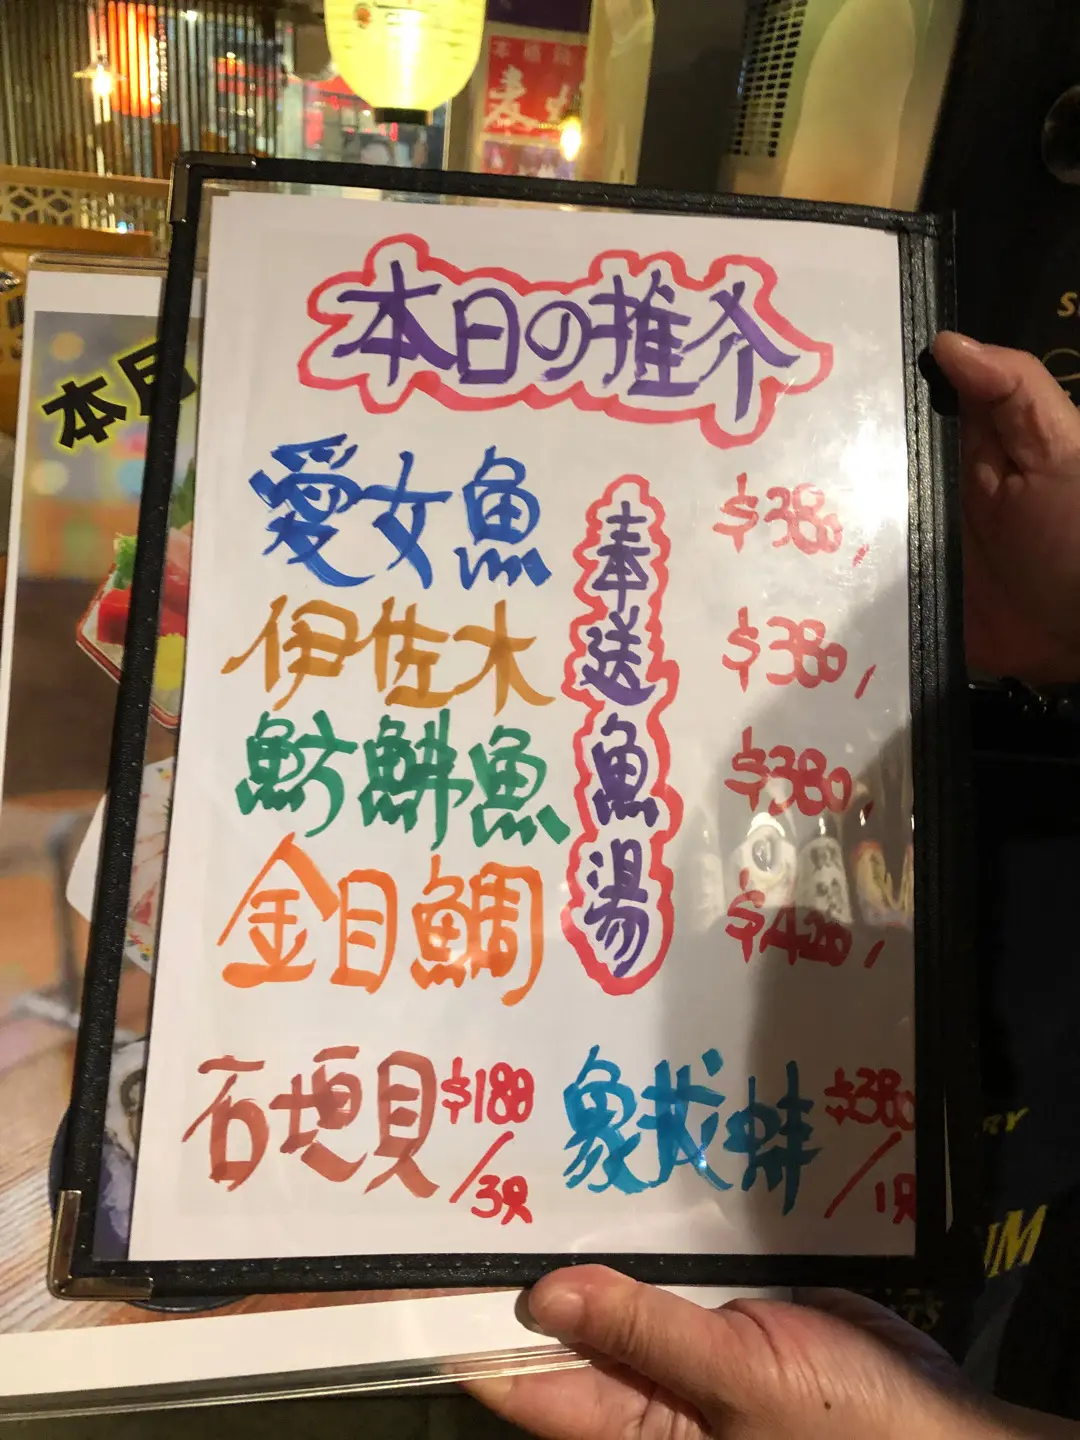 本日の推介
愛女魚 $380,
伊佐木 $380,
魴鮄魚 $380,
金目鯛 $428,
奉送魚湯
石垣貝 $188/3只
象拔蚌 $380/1只
本日
麦
RY
UM